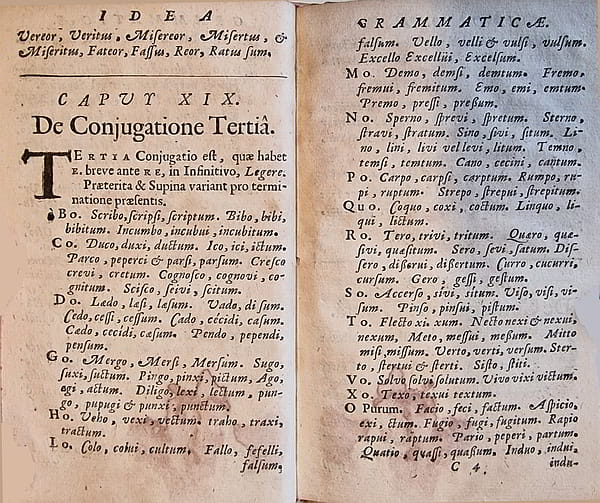 IDEA
Vereor, Veritus. Misereor, Misertus, &
Miseritus, Fateor, Fassus, Reor, Ratus sum.
CAPVT XIX.
De Conjugatione Tertiâ.
TERTIA Conjugatio est, quæ habet
E. breve ante RE, in Infinitivo, Legere.
Præterita & Supina variant pro termi-
natione præsentis.
Bo. Scribo, scripsi, scriptum. Bibo, bibi,
bibitum. Incumbo, incubui, incubitum.
Co. Duco, duxi, ductum. Ico, ici, ictum.
Parco, peperci & parsi, parsum. Cresco
crevi, cretum. Cognosco, cognovi, co-
gnitum. Scisco, scivi, scitum.
Do. Lædo, læsi, læsum. Vado, di sum.
Cedo, cessi, cessum. Cado, cécidi, casum.
Cædo, cecidi, cæsum. Pendo, pependi,
pensum.
Go. Mergo, Mersi, Mersum. Sugo,
suxi, suctum. Pingo, pinxi, pictum, Ago,
egi, actum. Diligo, lexi, lectum, pun-
go, pupugi & punxi, punctum.
Ho. Veho, vexi, vectum. traho, traxi,
tractum.
Lo. Colo, colui, cultum. Fallo, fefelli,
falsum,
GRAMMATICÆ.
falsum. Vello, velli & vulsi, vulsum.
Excello Excellui, Excelsum.
Mo. Demo, demsi, demtum. Fremo,
fremui, fremitum. Emo, emi, emtum.
Premo, pressi, preßum.
No. Sperno, sprevi, spretum. Sterno,
stravi, stratum. Sino, sivi, situm. Li-
no, lini, livi vel levi, litum. Temno,
temsi, temtum. Cano, cecini, cantum.
Po. Carpo, carpsi, carptum. Rumpo, ru-
pi, ruptum. Strepo, strepui, strepitum.
Quo. Coquo, coxi, coctum. Linquo, li-
qui, lictum.
Ro. Tero, trivi, tritum. Quæro, quæ-
sivi, quæsitum. Sero, sevi, satum. Dis-
sero, dißerui, dißertum. Curro, cucurri,
cursum. Gero, gessi, gestum.
So. Accerso, sivi, situm. Viso, visi, vi-
sum. Pinso, pinsui, pistum.
To. Flecto xi. xum. Necto nexi & nexui,
nexum, Meto, messui, meßum. Mitto
misi, missum. Verto, verti, versum. Ster-
to, stertui & sterti. Sisto, stiti.
Vo. Solvo solvi solutum. Vivo vixi victum.
Xo. Texo, texui textum.
O Purum. Facio, feci, factum. Aspicio,
exi, ctum. Fugio, fugi, fugitum. Rapio
rapui, raptum. Pario, peperi, partum.
Quatio, quassi, quaßum. Induo, indui,
C 4. indu-